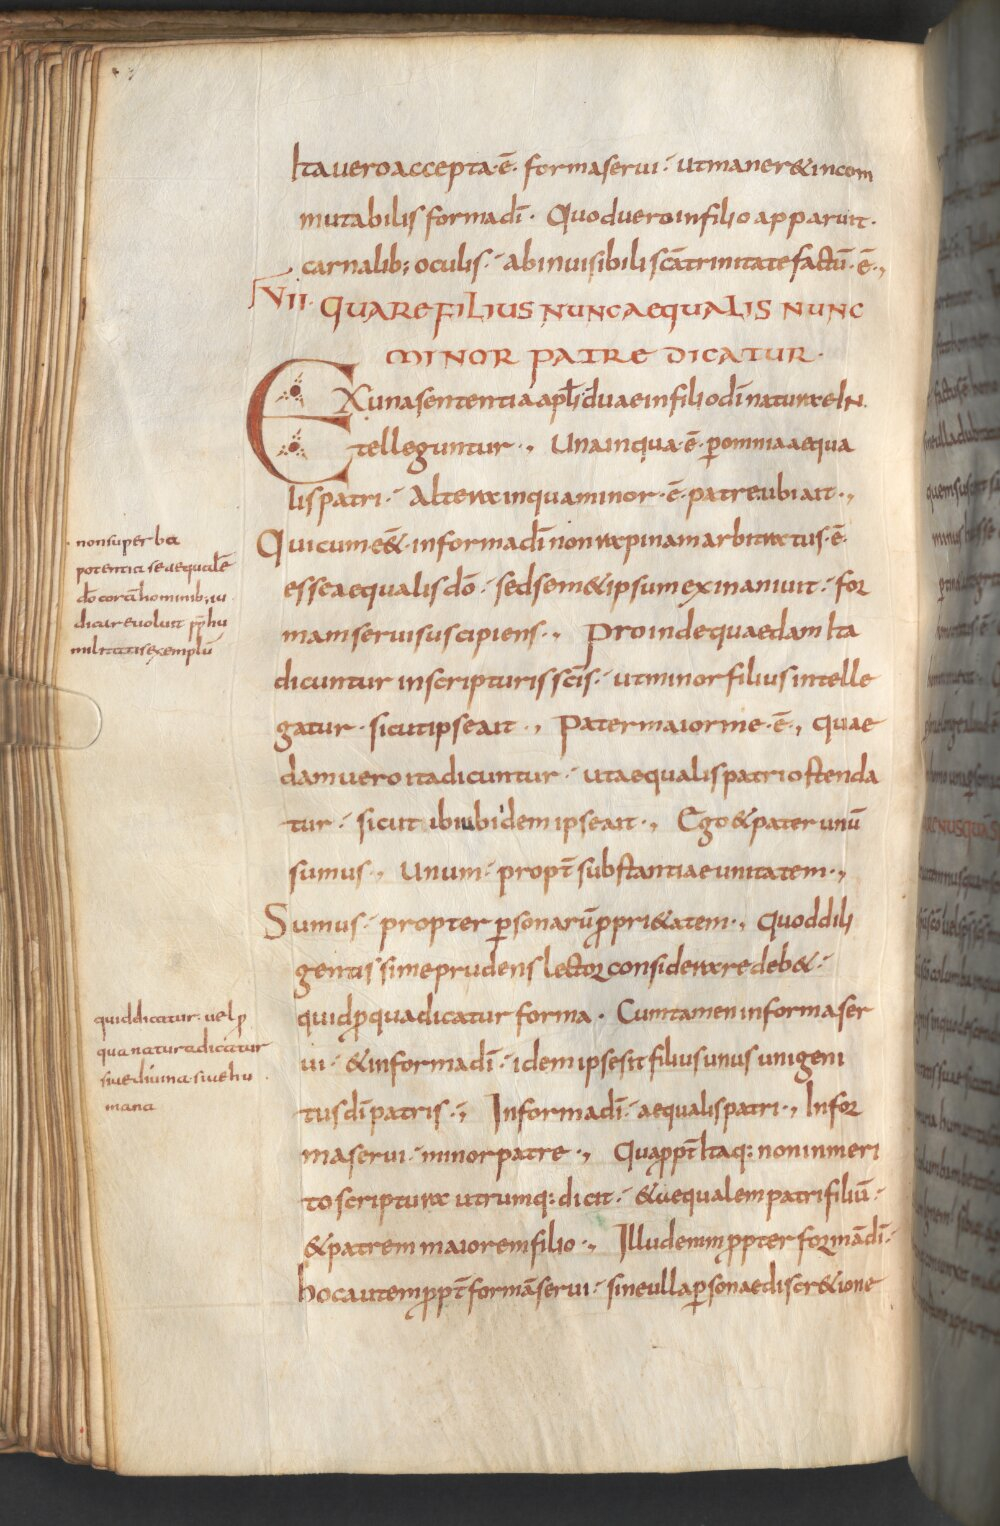 Ita vero accepta · ē · forma servi · ut maner& incom
mutabilis forma dī · Quod vero in filio apparuit ·
carnalib; oculis · ab invisibili scā trinitate factū · ē ·,
VII · QUARE FILIUS NUNC AEQUALIS NUNC
MINOR PATRE DICATUR ·
EX una sententia apłi duae in filio dī naturae IN
telleguntur ·, Una in qua · ē · p omnia aequa
lis patri · Altera in qua minor · ē · patre ubi ait ·,
Qui cum ēē& · in forma dī non rapinam arbitratus · ē ·
esse aequalis dō · sed sem& ipsum exinanivit · for
mam servi suscipiens ·, Proinde quaedam Ita
dicuntur in scripturis scīs · ut minor filius intelle
gatur · sicut ipse ait ·, Pater maior me · ē ·, quae
dam vero ita dicuntur · ut aequalis patri ostenda
tur · sicut ibi ubi dem ipse ait ·, Ego & pater unū
sumus ·, Unum · propt̄ substantiae unitatem ·,
Sumus · propter psonarū ppri&atem ·, Quod dili
gentissime prudens lector considerare deb& ·
quid p qua dicatur forma · Cum tamen in forma ser
vi · & in forma dī · idem ipse sit filius unus unigeni
tus dī patris ·, In forma dī · aequalis patri ·, In for
ma servi · minor patre ·, Quappt̄ Itaq: non inmeri
to scriptura utrumq: dicit · & aequalem patri filiū ·
& patrem maiorem filio ·, Illud enim ppter formā dī ·
hoc autem ppt̄ formā servi · sine ulla psonae discr&ione
non superba
potentia se aequalē
dō corā hominib; iu
dicare voluit pp hu
militatis exemplū
quid dicatur: vel p
qua natura dicatur
sive divina · sive hu
mana